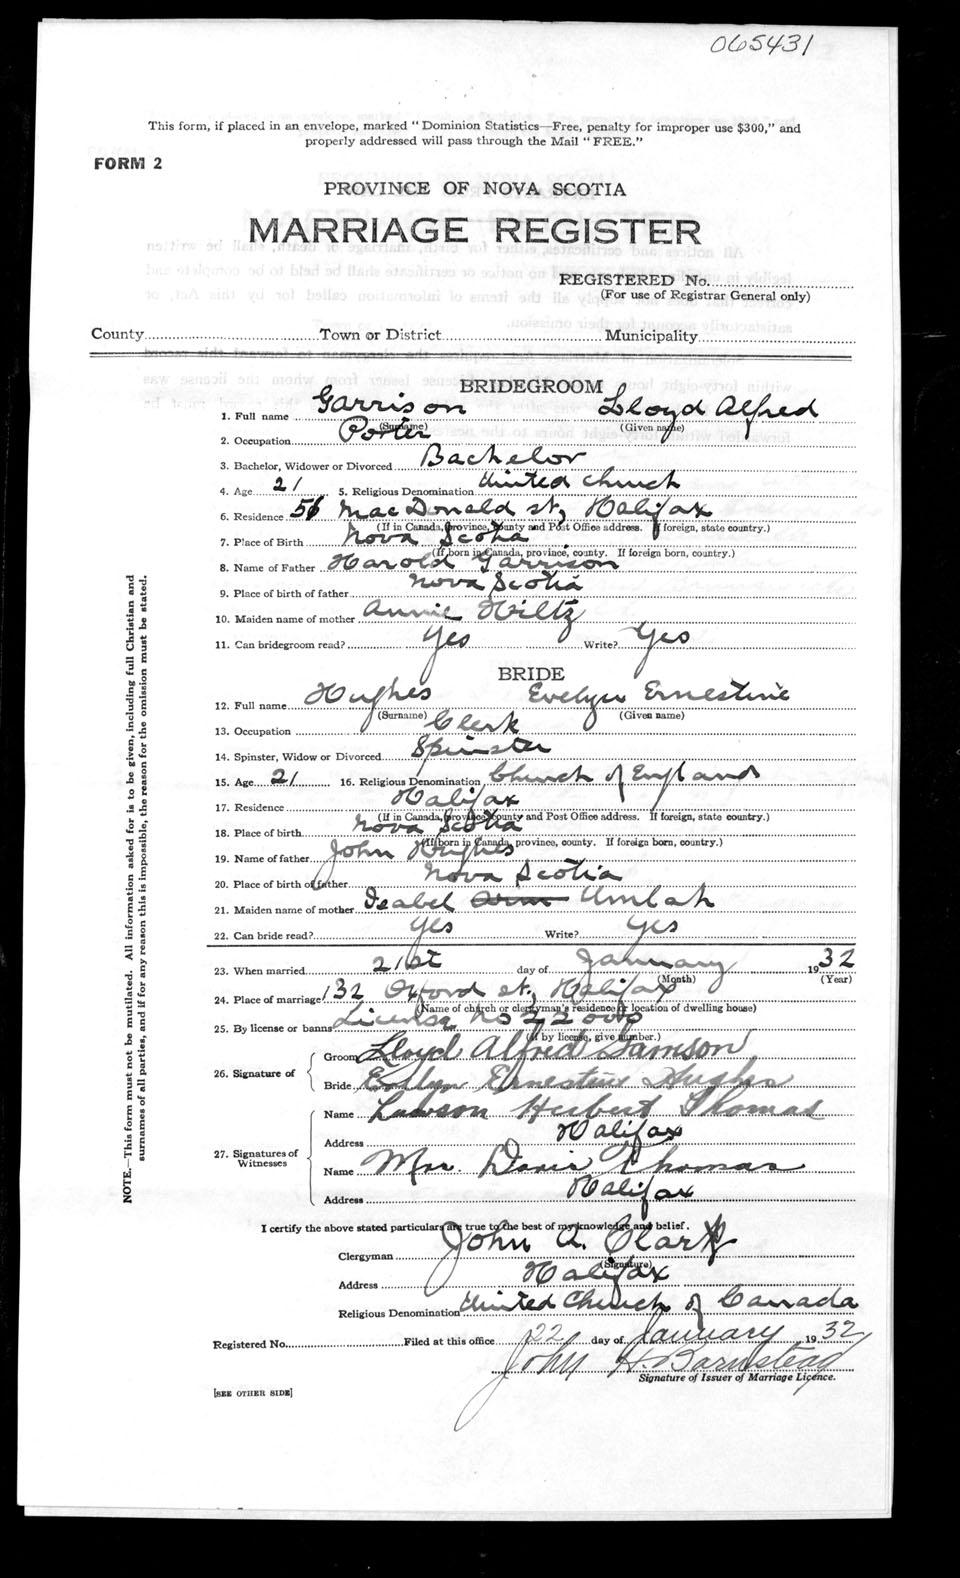 065431
This form, if placed in an envelope, marked "Dominion Statistics—Free, penalty for improper use $300," and
properly addressed will pass through the Mail "FREE."
FORM 2
PROVINCE OF NOVA SCOTIA
MARRIAGE REGISTER
REGISTERED No.
(For use of Registrar General only)
County Town or District Municipality
BRIDEGROOM
1. Full name Garrison Lloyd Alfred
(Surname) (Given name)
2. Occupation Porter
3. Bachelor, Widower or Divorced Bachelor
4. Age 21 5. Religious Denomination United Church
6. Residence 56 MacDonald st, Halifax
(If in Canada, province, county and Post Office address. If foreign, state country.)
7. Place of Birth Nova Scotia
(If born in Canada, province, county. If foreign born, country.)
8. Name of Father Harold Garrison
9. Place of birth of father Nova Scotia
10. Maiden name of mother Annie Hiltz
11. Can bridegroom read? Yes Write? Yes
BRIDE
12. Full name Hughes Evelyn Ernestine
(Surname) (Given name)
13. Occupation Clerk
14. Spinster, Widow or Divorced Spinster
15. Age 21 16. Religious Denomination Church of England
17. Residence Halifax
(If in Canada, province, county and Post Office address. If foreign, state country.)
18. Place of birth Nova Scotia
(If born in Canada, province, county. If foreign born, country.)
19. Name of father John Hughes
20. Place of birth of father Nova Scotia
21. Maiden name of mother Isabel Umlah
22. Can bride read? Yes Write? Yes
23. When married 21st day of January 1932
(Month) (Year)
24. Place of marriage 132 Oxford st, Halifax
(Name of church or clergyman's residence or location of dwelling house)
25. By license or banns License No
(If by license, give number.)
26. Signature of
Groom Lloyd Alfred Garrison
Bride Evelyn Ernestine Hughes
27. Signatures of
Witnesses
Name Lawson Herbert Thomas
Address Halifax
Name Mrs. Doris Thomas
Address Halifax
I certify the above stated particulars are true to the best of my knowledge and belief.
Clergyman John A. Clark
(Signature)
Address Halifax
Religious Denomination United Church of Canada
Registered No. Filed at this office 22 day of January, 1932
John H. Barnstead
Signature of Issuer of Marriage Licence.
[SEE OTHER SIDE]
NOTE.—This form must not be mutilated. All information asked for is to be given, including full Christian and
surnames of all parties, and if for any reason this is impossible, the reason for the omission must be stated.